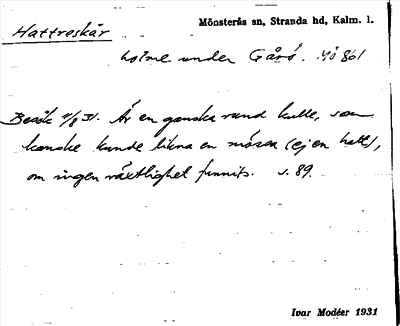 Hattreskär
Mönsterås sn, Stranda hd, Kalm. l.
holme under Gårö. MÖ 861
Besök 11/8 31. Är en ganska rund kulle, som
kanske kunde likna en mössa (ej en hatt),
om ingen växtlighet funnits. s. 89.
Ivar Modéer 1931